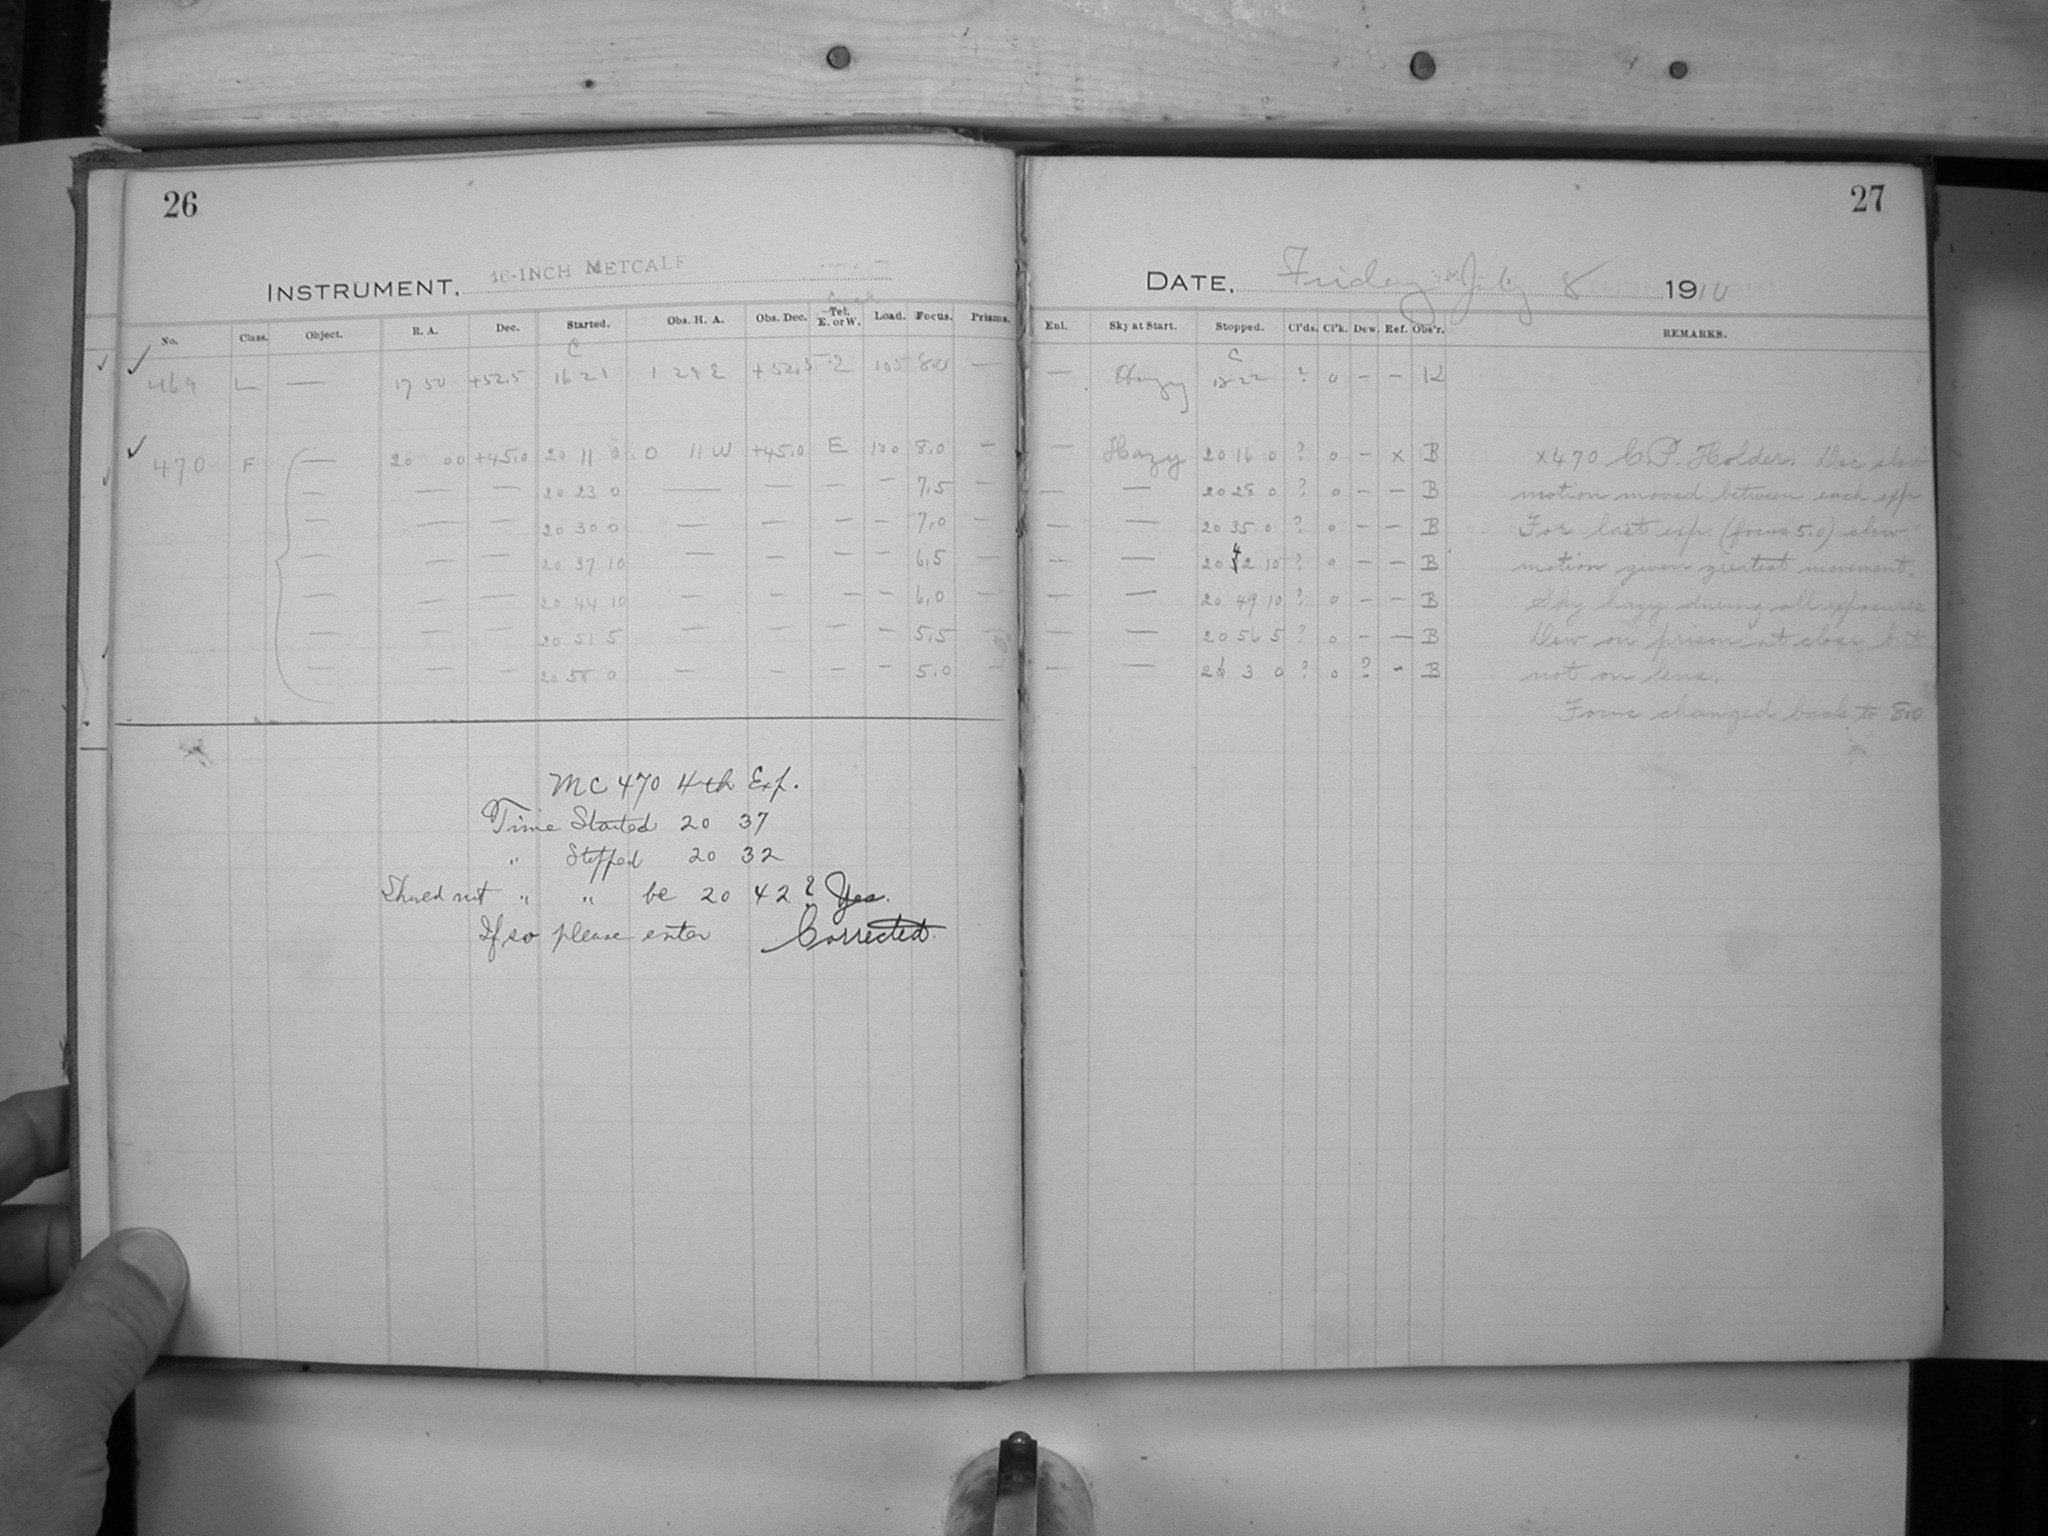 26
INSTRUMENT, 16-INCH METCALF
No. Class. Object. R. A. Dec. Started. Obs. H. A. Obs. Dec. Tel. E. or W. Load. Focus. Prisms.
C
469 L — 17 50 +52.5 16 21 1 29 E +52.5 105 8.0 —
470 F — 20 00 +45.0 20 11 0 0 11 W +45.0 E 100 8.0 —
— — — 20 23 0 — — — — 7.5 —
— — — 20 30 0 — — — — 7.0 —
— — — 20 37 10 — — — — 6.5 —
— — — 20 44 10 — — — — 6.0 —
— — — 20 51 5 — — — — 5.5 —
— — — 20 58 0 — — — — 5.0 —
MC 470 4th Exp.
Time Started 20 37
" Stopped 20 32
Should not " " be 20 42? Yes.
If so please enter Corrected.
27
DATE, Friday July 8 1910
Enl. Sky at Start. Stopped. Cl'ds. Cl'k. Dew. Ref. Obs'r. REMARKS.
C
— Hazy 22 ? 0 – –
— Hazy 20 16 0 ? 0 – x B x470 C.P. Holder. Dec slow
— — 20 28 0 ? 0 – – B motion moved between each exp
— — 20 35 0 ? 0 – – B For last exp. (focus 5.0) slow
— — 20 42 10 ? 0 – – B motion given greatest movement.
— — 20 49 10 ? 0 – – B Sky hazy during all exposures
— — 20 56 5 ? 0 – – B Dew on prism at close but
— — 21 3 0 ? 0 ? – B not on lens.
Focus changed back to 8.0